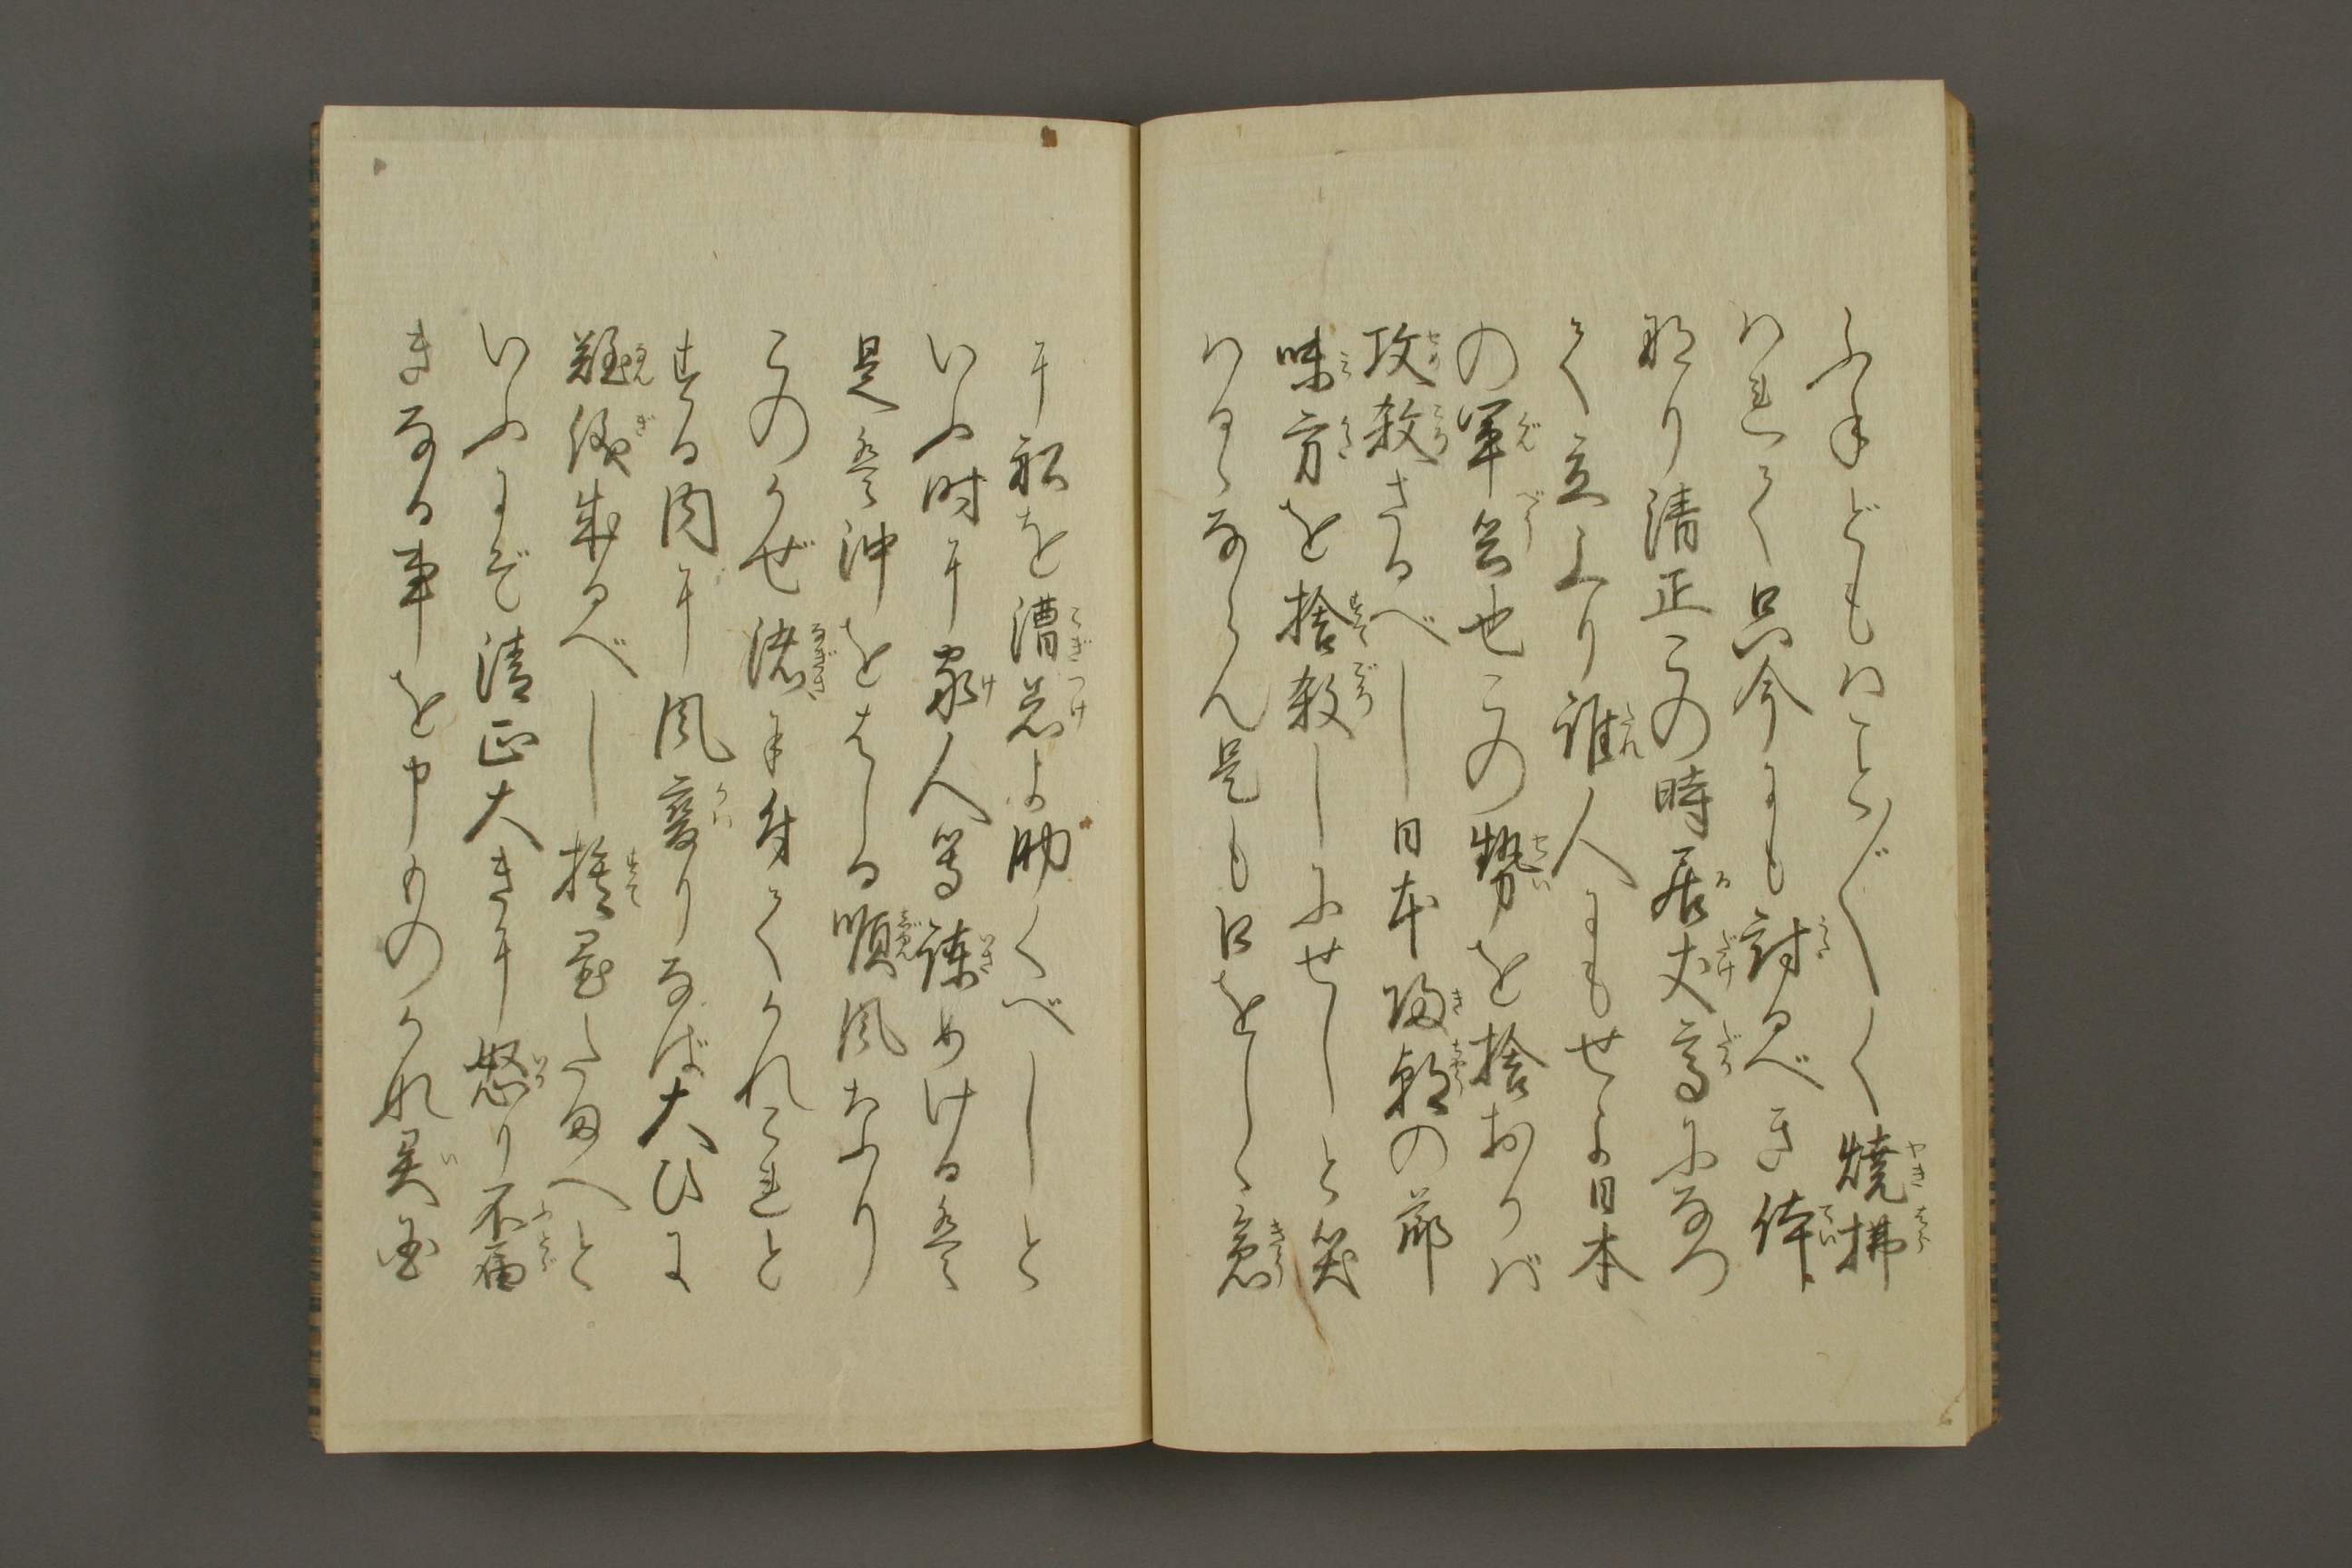 ふねどもはこと〴〵く焼拂
はれて只今にも討るべき体
なり清正この時居丈高になつ
て立上り誰人にもせよ日本
の軍兵也この勢を捨おかば
攻殺さるべし日本帰朝の節
味方を捨殺しにせしと笑
はるゝならん是も口をしゝ急
に船を漕着よ助くべしと
いふ時に家人等諫めける是
是は沖をはしる順風なふり
このかぜ渚に付てかれこれと
する内に風変りなば大ひに
難儀成るべし捨置たまへと
いふにぞ清正大きに怒り不届
きなる事を申ものかれ異国